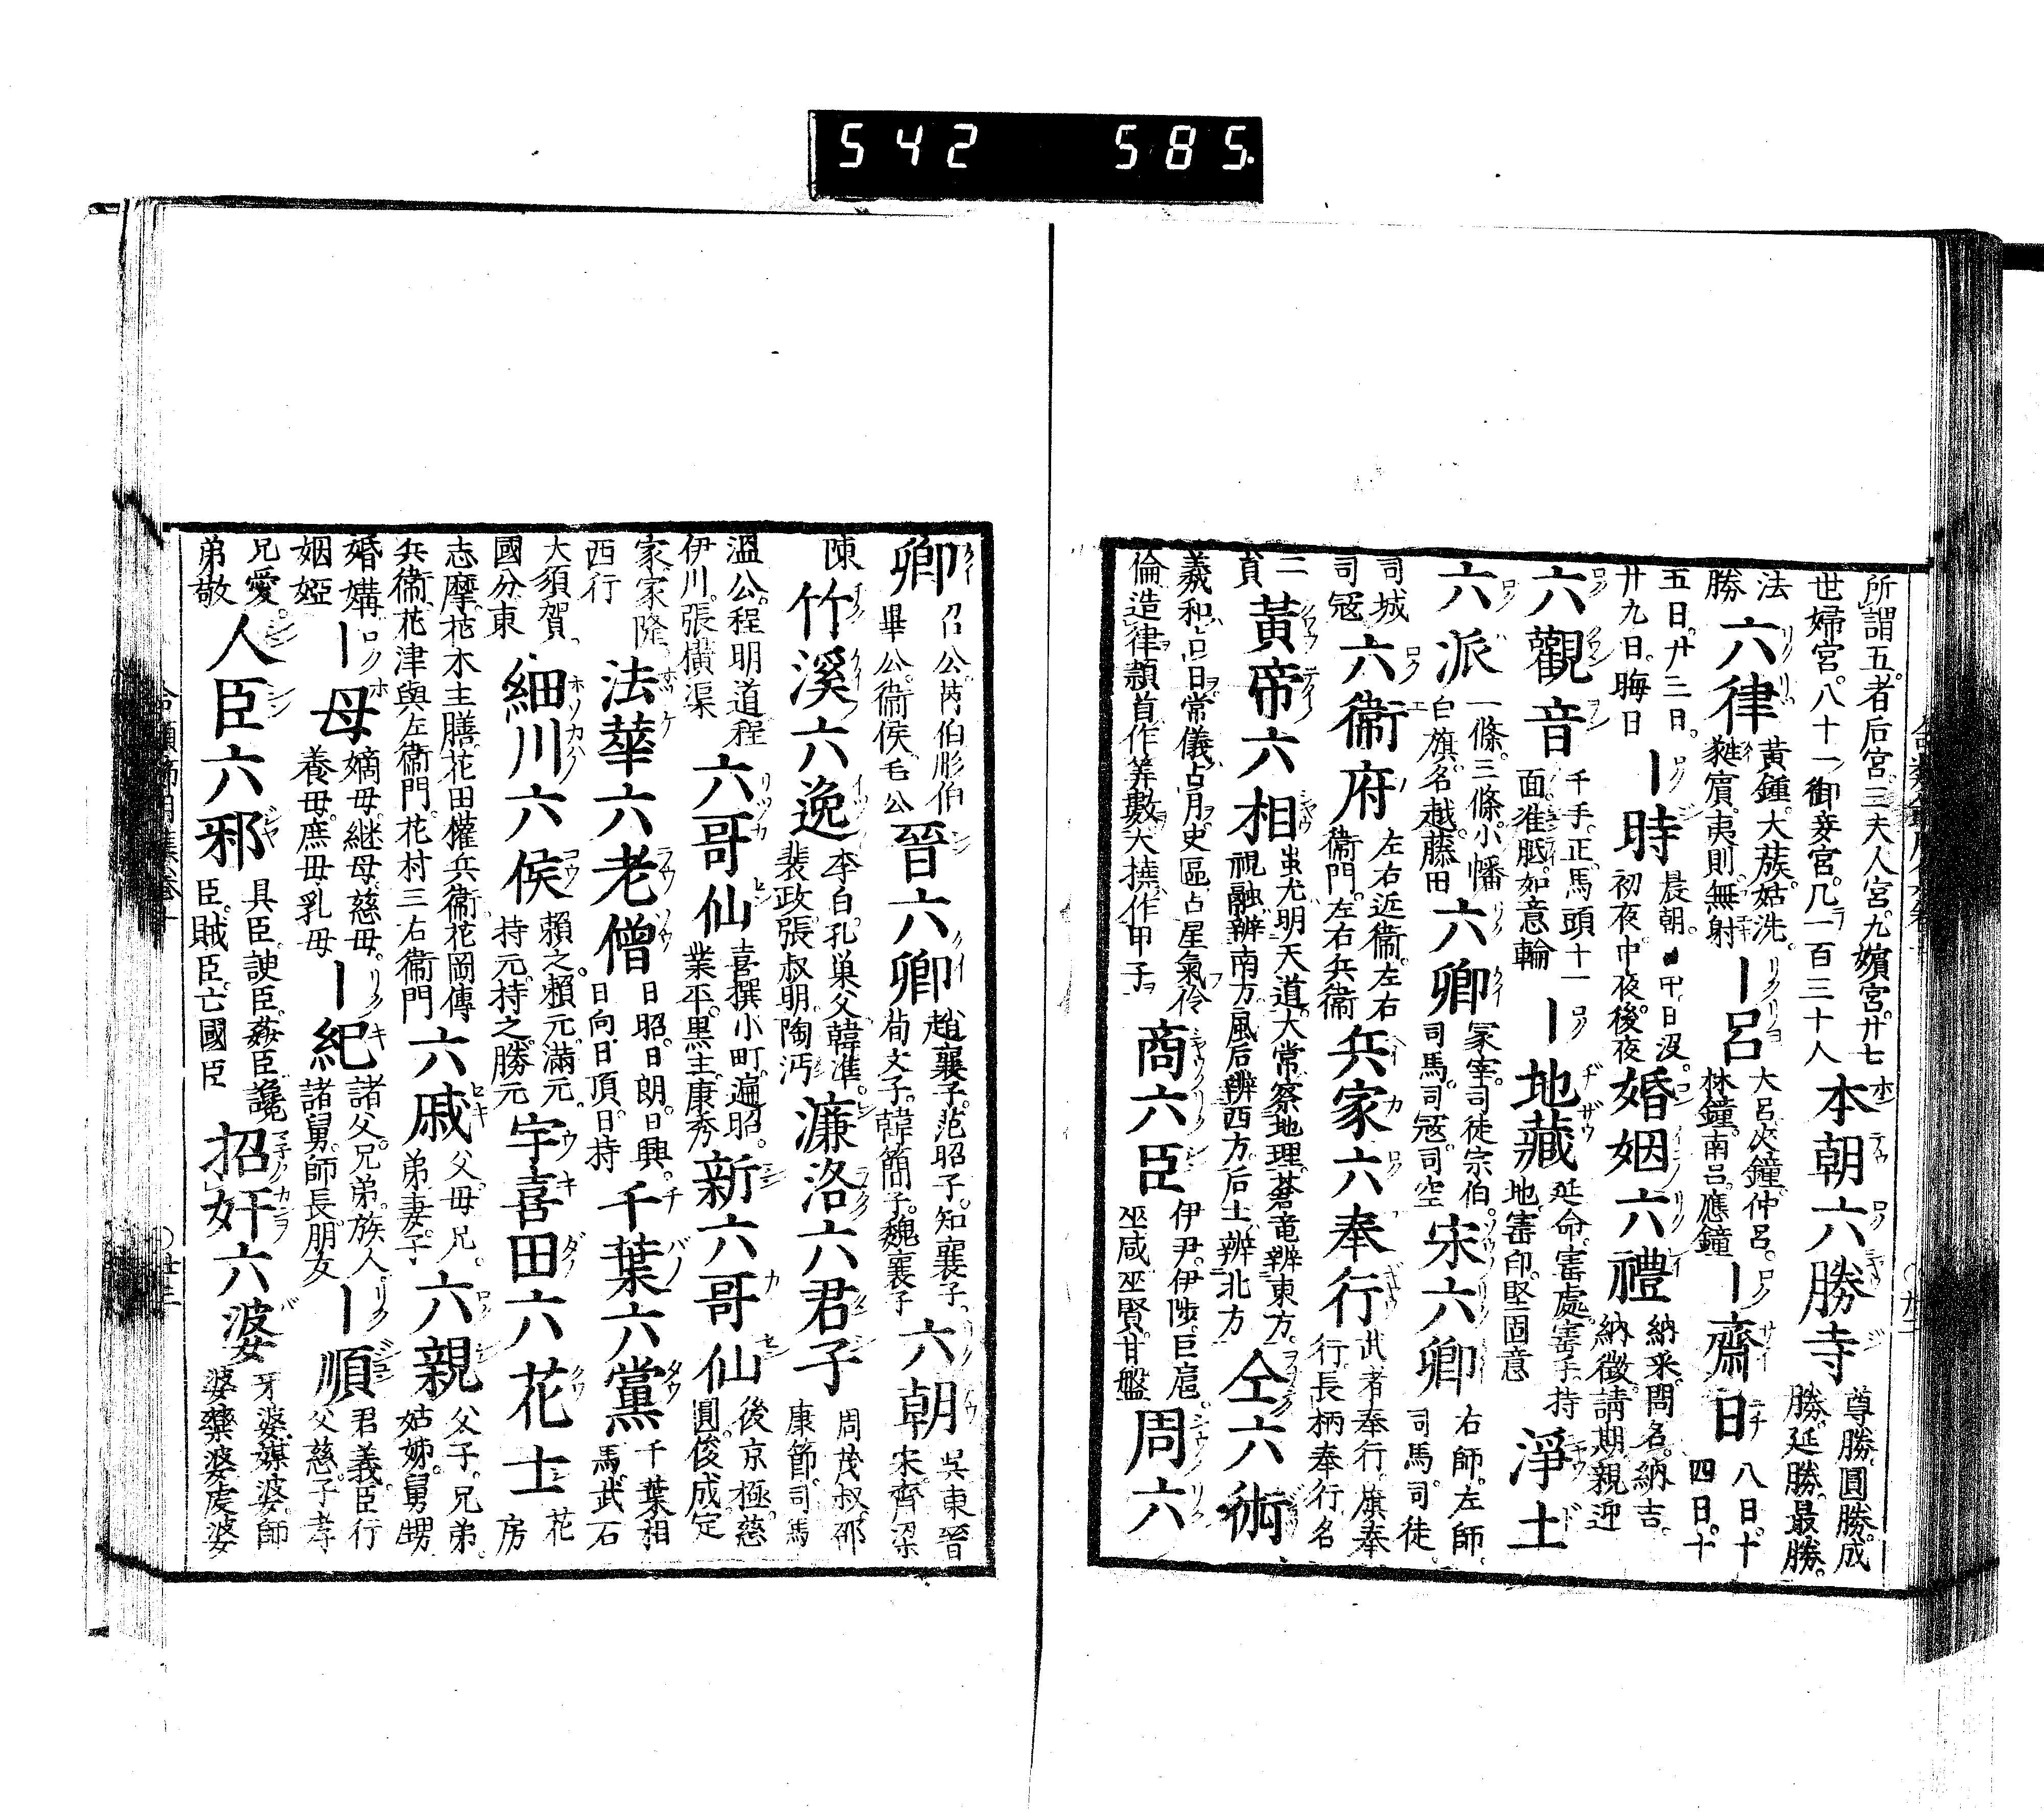 542 585.
所謂五者后宮三夫人宮九嬪宮廿七
世婦宮八十一御妾宮几一百三十人
本朝六勝寺
尊勝圓勝成
勝延勝最勝
法
勝
六律
黃鍾大蔟姑洗
蕤賓夷則無射
〡呂
大呂夾鐘仲呂
林鐘南呂應鐘
〡齋日
八日十
四日十
五日廿三日
廿九日晦日
〡時
晨朝日中日没
初夜中夜後夜
婚姻六禮
納采問名納吉
納徵請期親迎
六觀音
千手正馬頭十一
面准胝如意輪
〡地藏
延命宝處宝手持
地宝印堅固意
淨土
六派
一條三條小幡
白旗名越藤田
六卿
冢宰司徒宗伯
司馬司寇司空
宋六卿
右師左師
司馬司徒
司城
司寇
六衞府
左右近衞左右
衞門左右兵衞
兵家六奉行
武者奉行旗奉
行長柄奉行名
二
黃帝六相
蚩尤明天道大常察地理蒼竜辨東方
祝融辨南方風后辨西方后土辨北方
仝六術
羲和占日常儀占月史區占星氣伶
倫造律隷首作筭數大撓作甲子
商六臣
伊尹伊陟臣扈
巫咸巫賢甘盤
周六
卿
召公芮伯彤伯
畢公衞侯毛公
晉六卿
趙襄子范昭子知襄子
荀文子韓簡子魏襄子
六朝
吳東晉
宋齊梁
陳
竹溪六逸
李白孔巢父韓準
裴政張叔明陶沔
濂洛六君子
周茂叔邵
康節司馬
溫公程明道程
伊川張橫渠
六哥仙
喜撰小町遍昭
業平黒主康秀
新六哥仙
後京極慈
圓俊成定
家家隆
西行
法華六老僧
日昭日朗日興
日向日頂日持
千葉六黨
千葉相
馬武石
大須賀
國分東
細川六侯
賴之賴元滿元
持元持之勝元
宇喜田六花士
花
房
志摩花木主膳花田權兵衞花岡傳
兵衞花津與左衞門花村三右衞門
六戚
父母兄
弟妻子
六親
父子兄弟
姑姊舅甥
婚媾
姻婭
〡母
嫡母継母慈母
養母庶母乳母
〡紀
諸父兄弟族人
諸舅師長朋友
〡順
君義臣行
父慈子孝
兄愛
弟敬
人臣六邪
具臣諛臣姦臣讒
臣賊臣亡國臣
招奸六婆
牙婆媒婆師
婆藥婆䖍婆